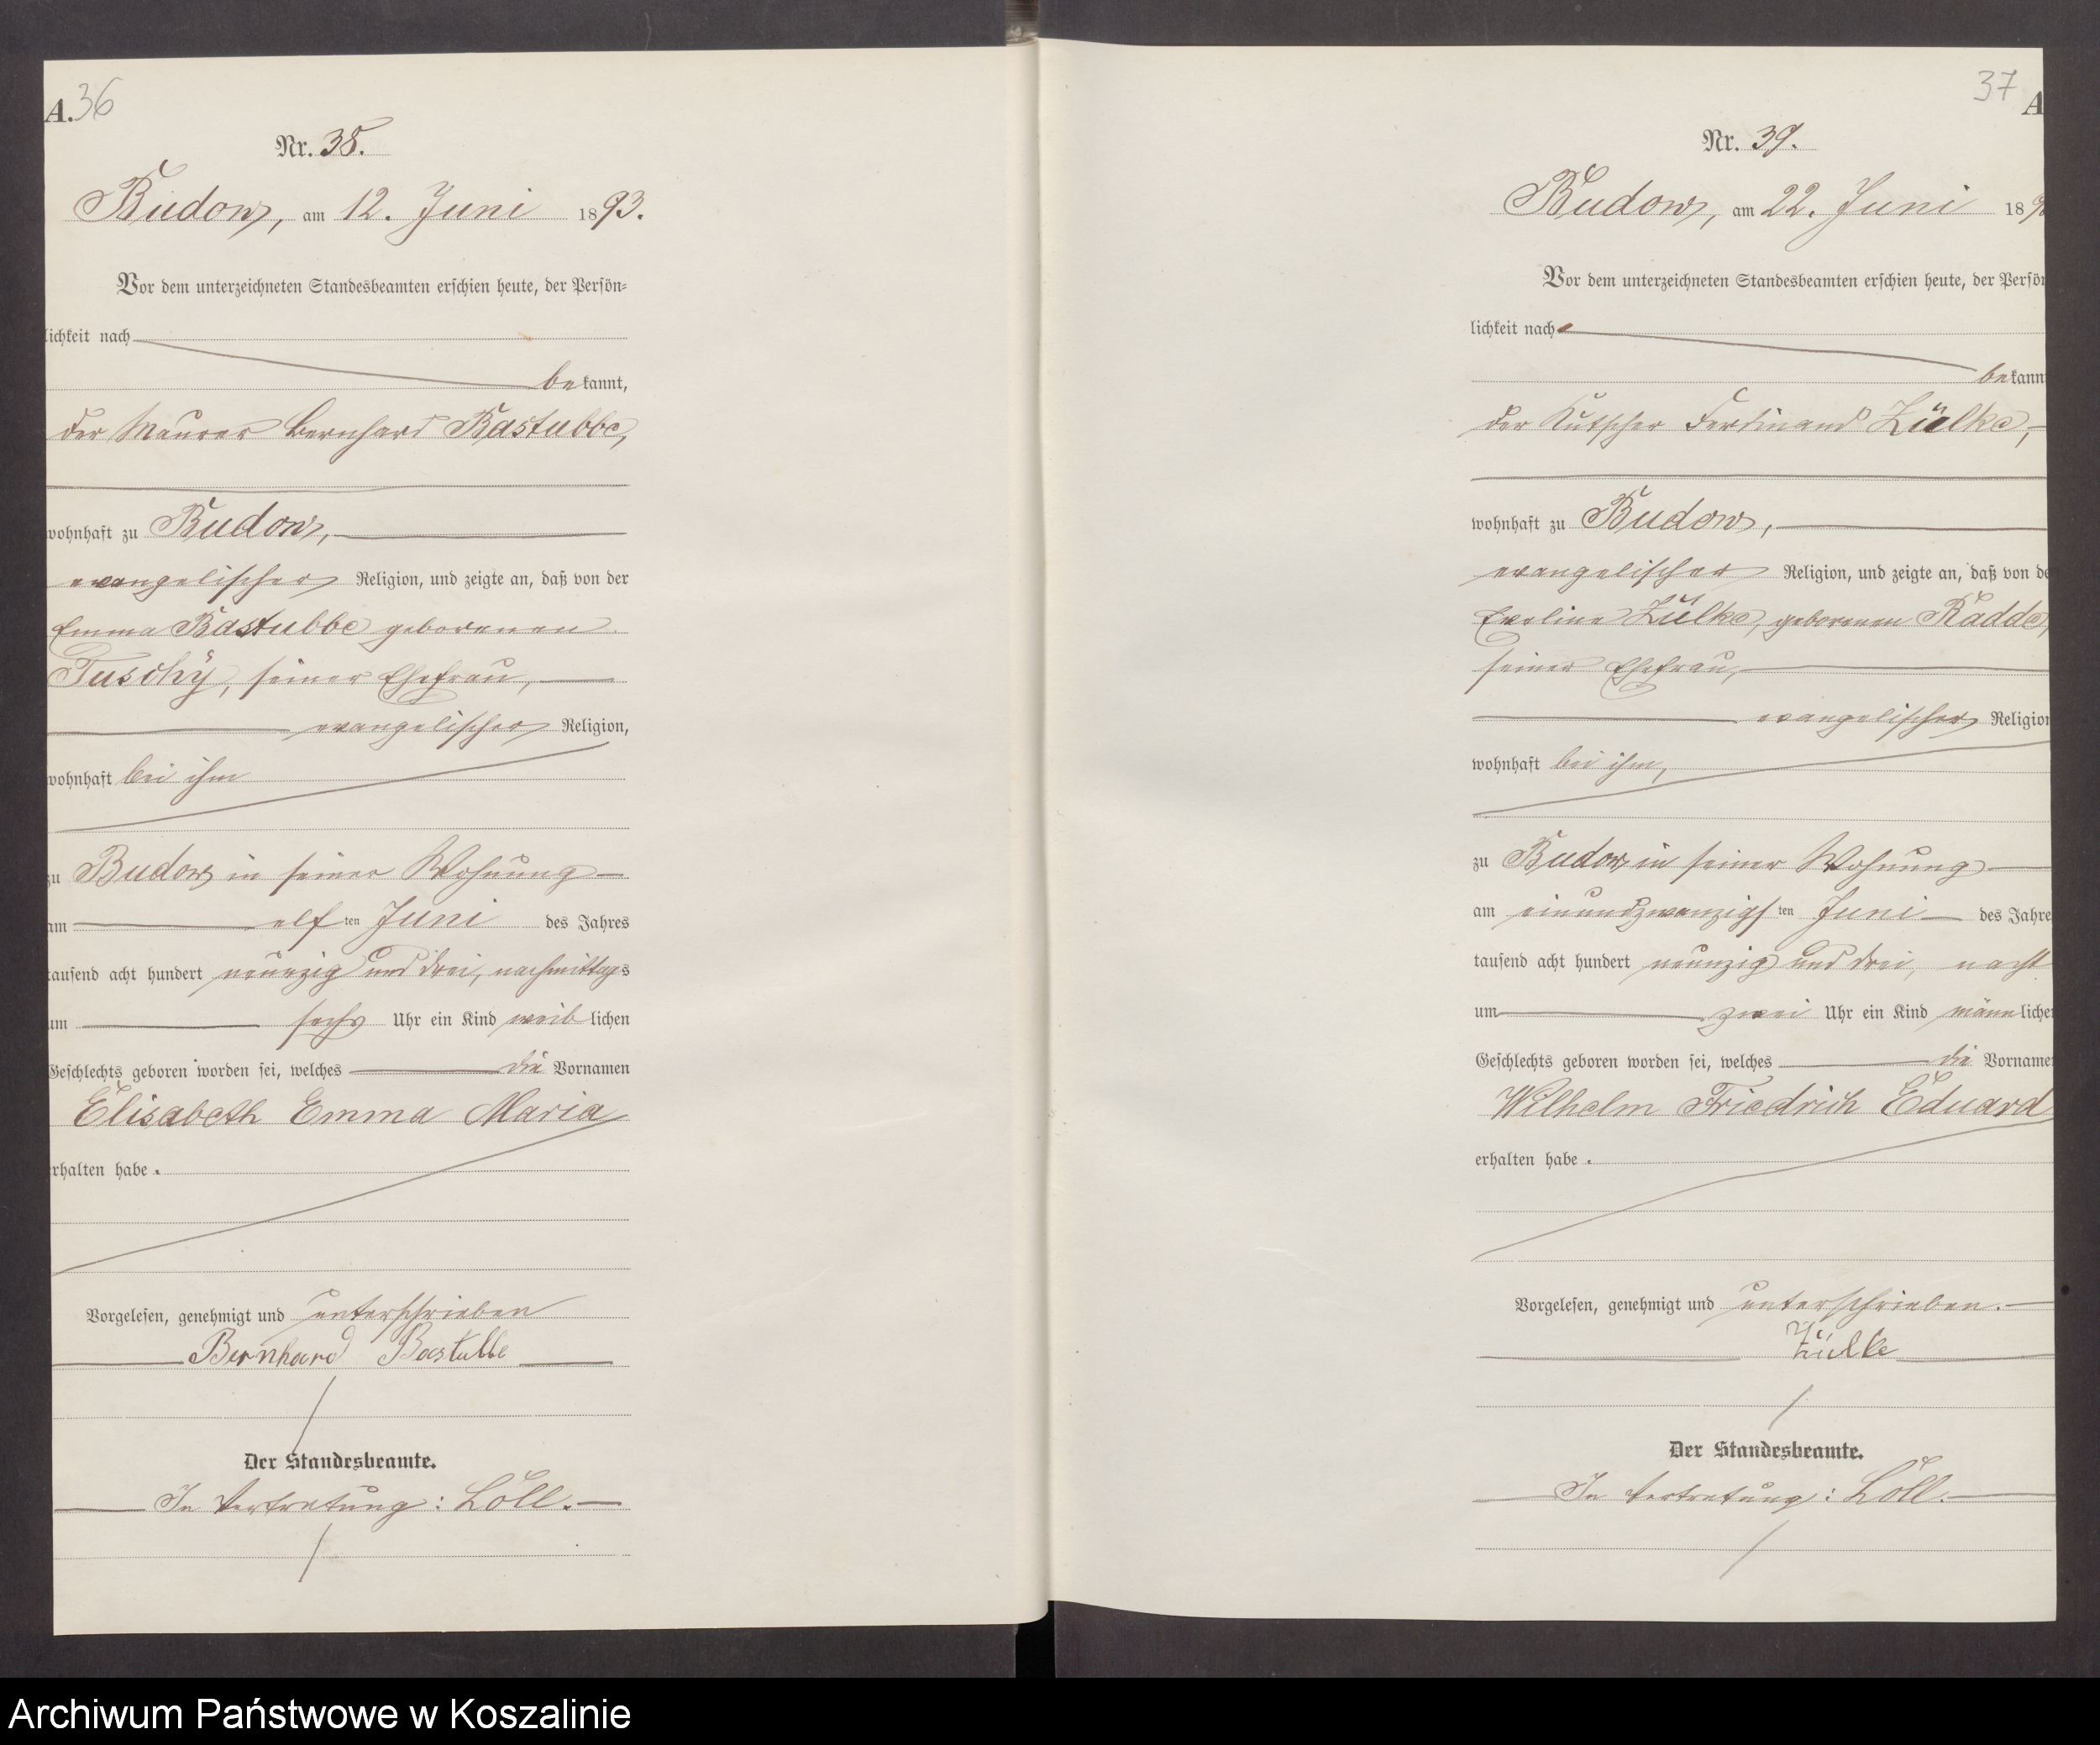 A. 36
Nr. 38.
Budow, am 12. Juni 1893.
Vor dem unterzeichneten Standesbeamten erschien heute, der Persön-
lichkeit nach
bekannt,
der Maurer Bernhard Bastubbe,
wohnhaft zu Budow,
evangelischer Religion, und zeigte an, daß von der
Emma Bastubbe geborenen
Tuschÿ, seiner Ehefrau,
evangelischer Religion,
wohnhaft bei ihm
zu Budow in seiner Wohnung
am elften Juni des Jahres
tausend acht hundert neunzig und drei, nachmittags
um sechs Uhr ein Kind weiblichen
Geschlechts geboren worden sei, welches die Vornamen
Elisabeth Emma Maria
erhalten habe.
Vorgelesen, genehmigt und unterschrieben
Bernhard Bastubbe
Der Standesbeamte.
In Vertretung: Löll.
37 A
Nr. 39.
Budow, am 22. Juni 189
Vor dem unterzeichneten Standesbeamten erschien heute, der Persön
lichkeit nach
bekann
der Kutscher Ferdinand Zülke,
wohnhaft zu Budow,
evangelischer Religion, und zeigte an, daß von de
Eveline Zülke, geborenen Radde,
seiner Ehefrau,
evangelischer Religion
wohnhaft bei ihm,
zu Budow in seiner Wohnung
am einundzwanzigsten Juni des Jahre
tausend acht hundert neunzig und drei, nacht
um zwei Uhr ein Kind männliche
Geschlechts geboren worden sei, welches die Vorname
Wilhelm Friedrich Eduard
erhalten habe.
Vorgelesen, genehmigt und unterschrieben.
Zülke
Der Standesbeamte.
In Vertretung: Löll.
Archiwum Państwowe w Koszalinie